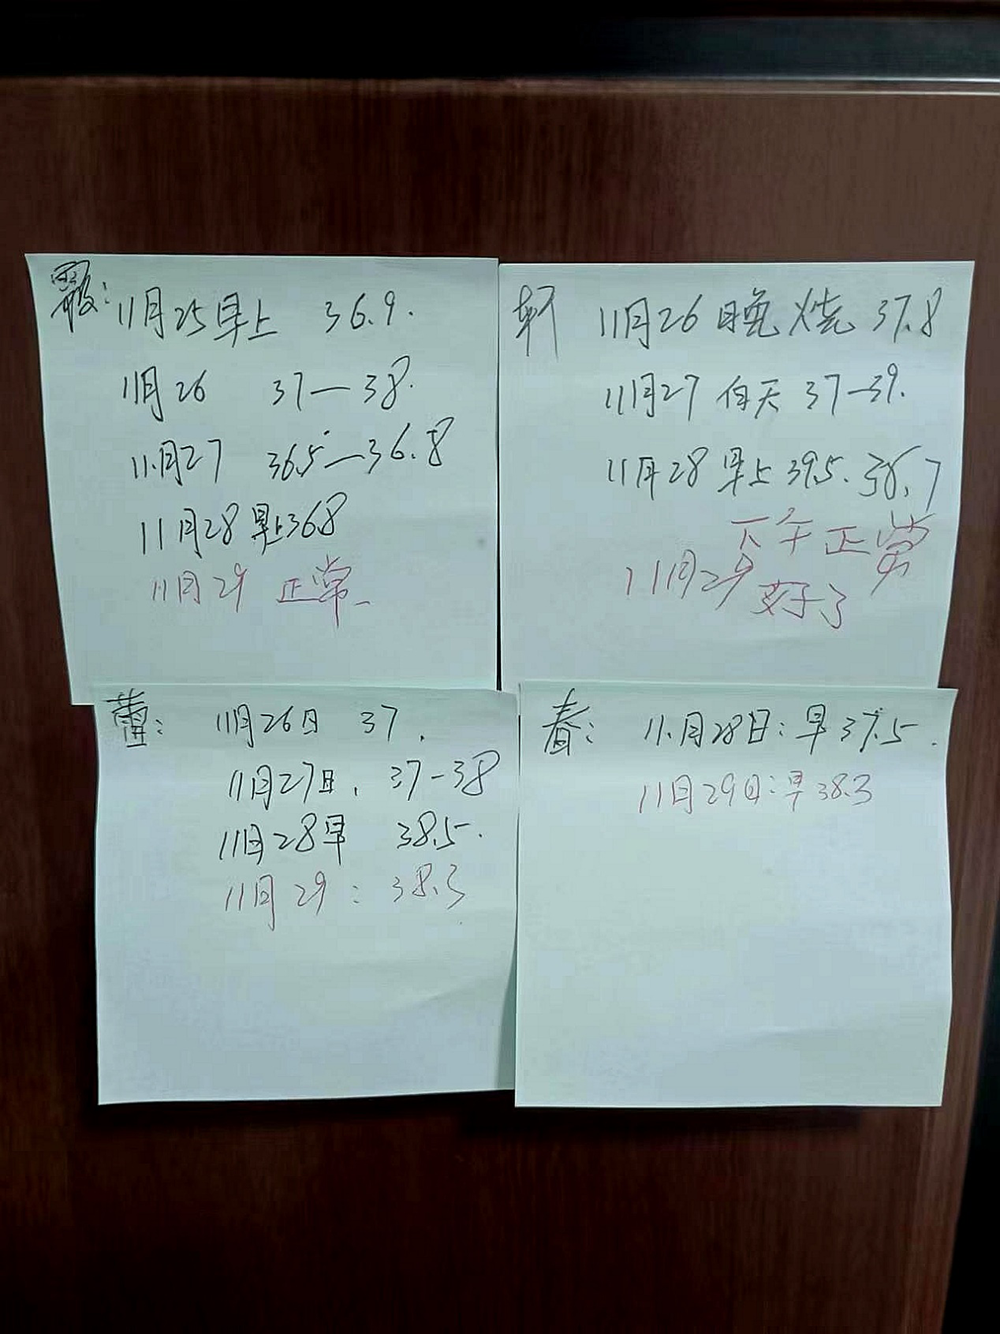 霞: 11月25早上 36.9.
11月26 37—38.
11月27 36.5—36.8
11月28早上36.8
11月29 正常
轩 11月26 晚烧 37.8
11月27 白天 37—39.
11月28 早上39.5. 36.7
下午正常
11月29 好了
蕾: 11月26日 37.
11月27日. 37-38
11月28早 38.5.
11月29: 38.3
春: 11月28日:早37.5.
11月29日:早38.3